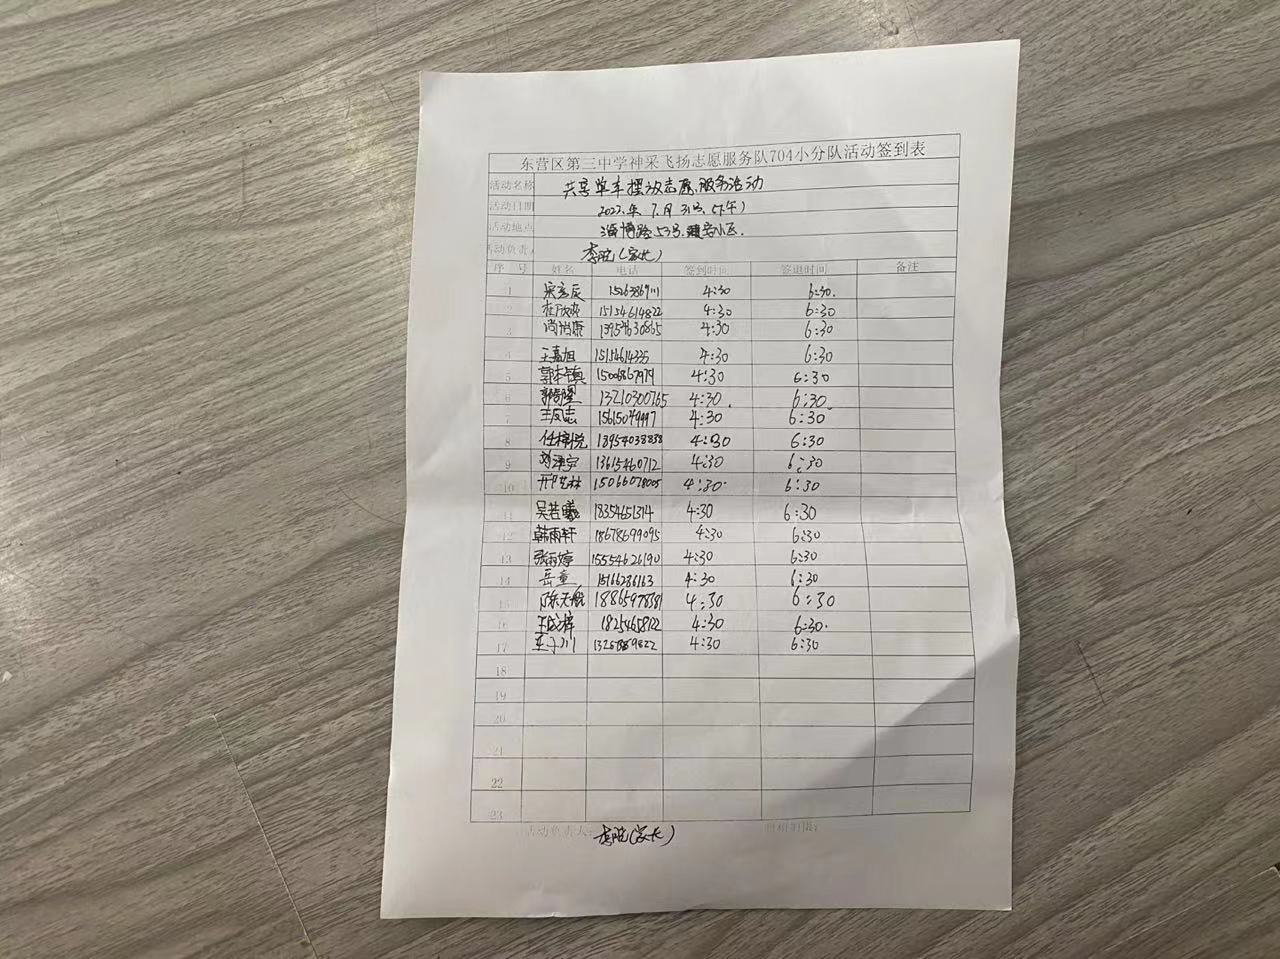 东营区第三中学神采飞扬志愿服务队704小分队活动签到表
活动名称 共享单车摆放志愿服务活动
活动日期 2022年7月31号(下午)
活动地点 淄博路53号,建安小区.
活动负责人 (家长)
序号 姓名 电话 签到时间 签退时间 备注
1 4:30 6:30.
2 15154614822 4:30 6:30
3 尚尚康 13954630865 4:30 6:30
4 王嘉旭 15154614335 4:30 6:30
5 郭本镇 15006867979 4:30 6:30
6 13210300765 4:30. 6:30.
7 王凤志 15615049997 4:30 6:30
8 任梓悦 18954038838 4:30 6:30
9 刘泽宇 13615460712 4:30 6:30
10 邢艺林 15066078005 4:30 6:30
11 吴若曦 18354651314 4:30 6:30
12 韩雨轩 18678699095 4:30 6:30
13 张雨婷 15554626190 4:30 6:30
14 岳童 15166286163 4:30 6:30
15 陈天航 18865978381 4:30 6:30
16 18254658122 4:30 6:30.
17 4:30 6:30
18
19
20
21
22
23
活动负责人: (家长)